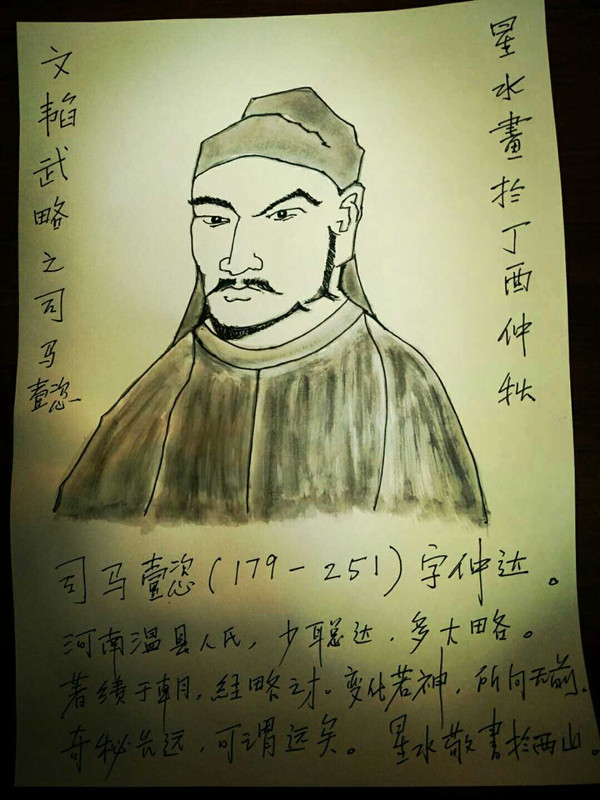 星水畫於丁酉仲秋
文韬武略之司马懿
司马懿(179-251)字仲达。
河南温县人氏,少聪达,多大略。
著绩于朝,经略之才。变化若神,所向无前。
奇秘长远,可谓远矣。 星水敬書於西山。